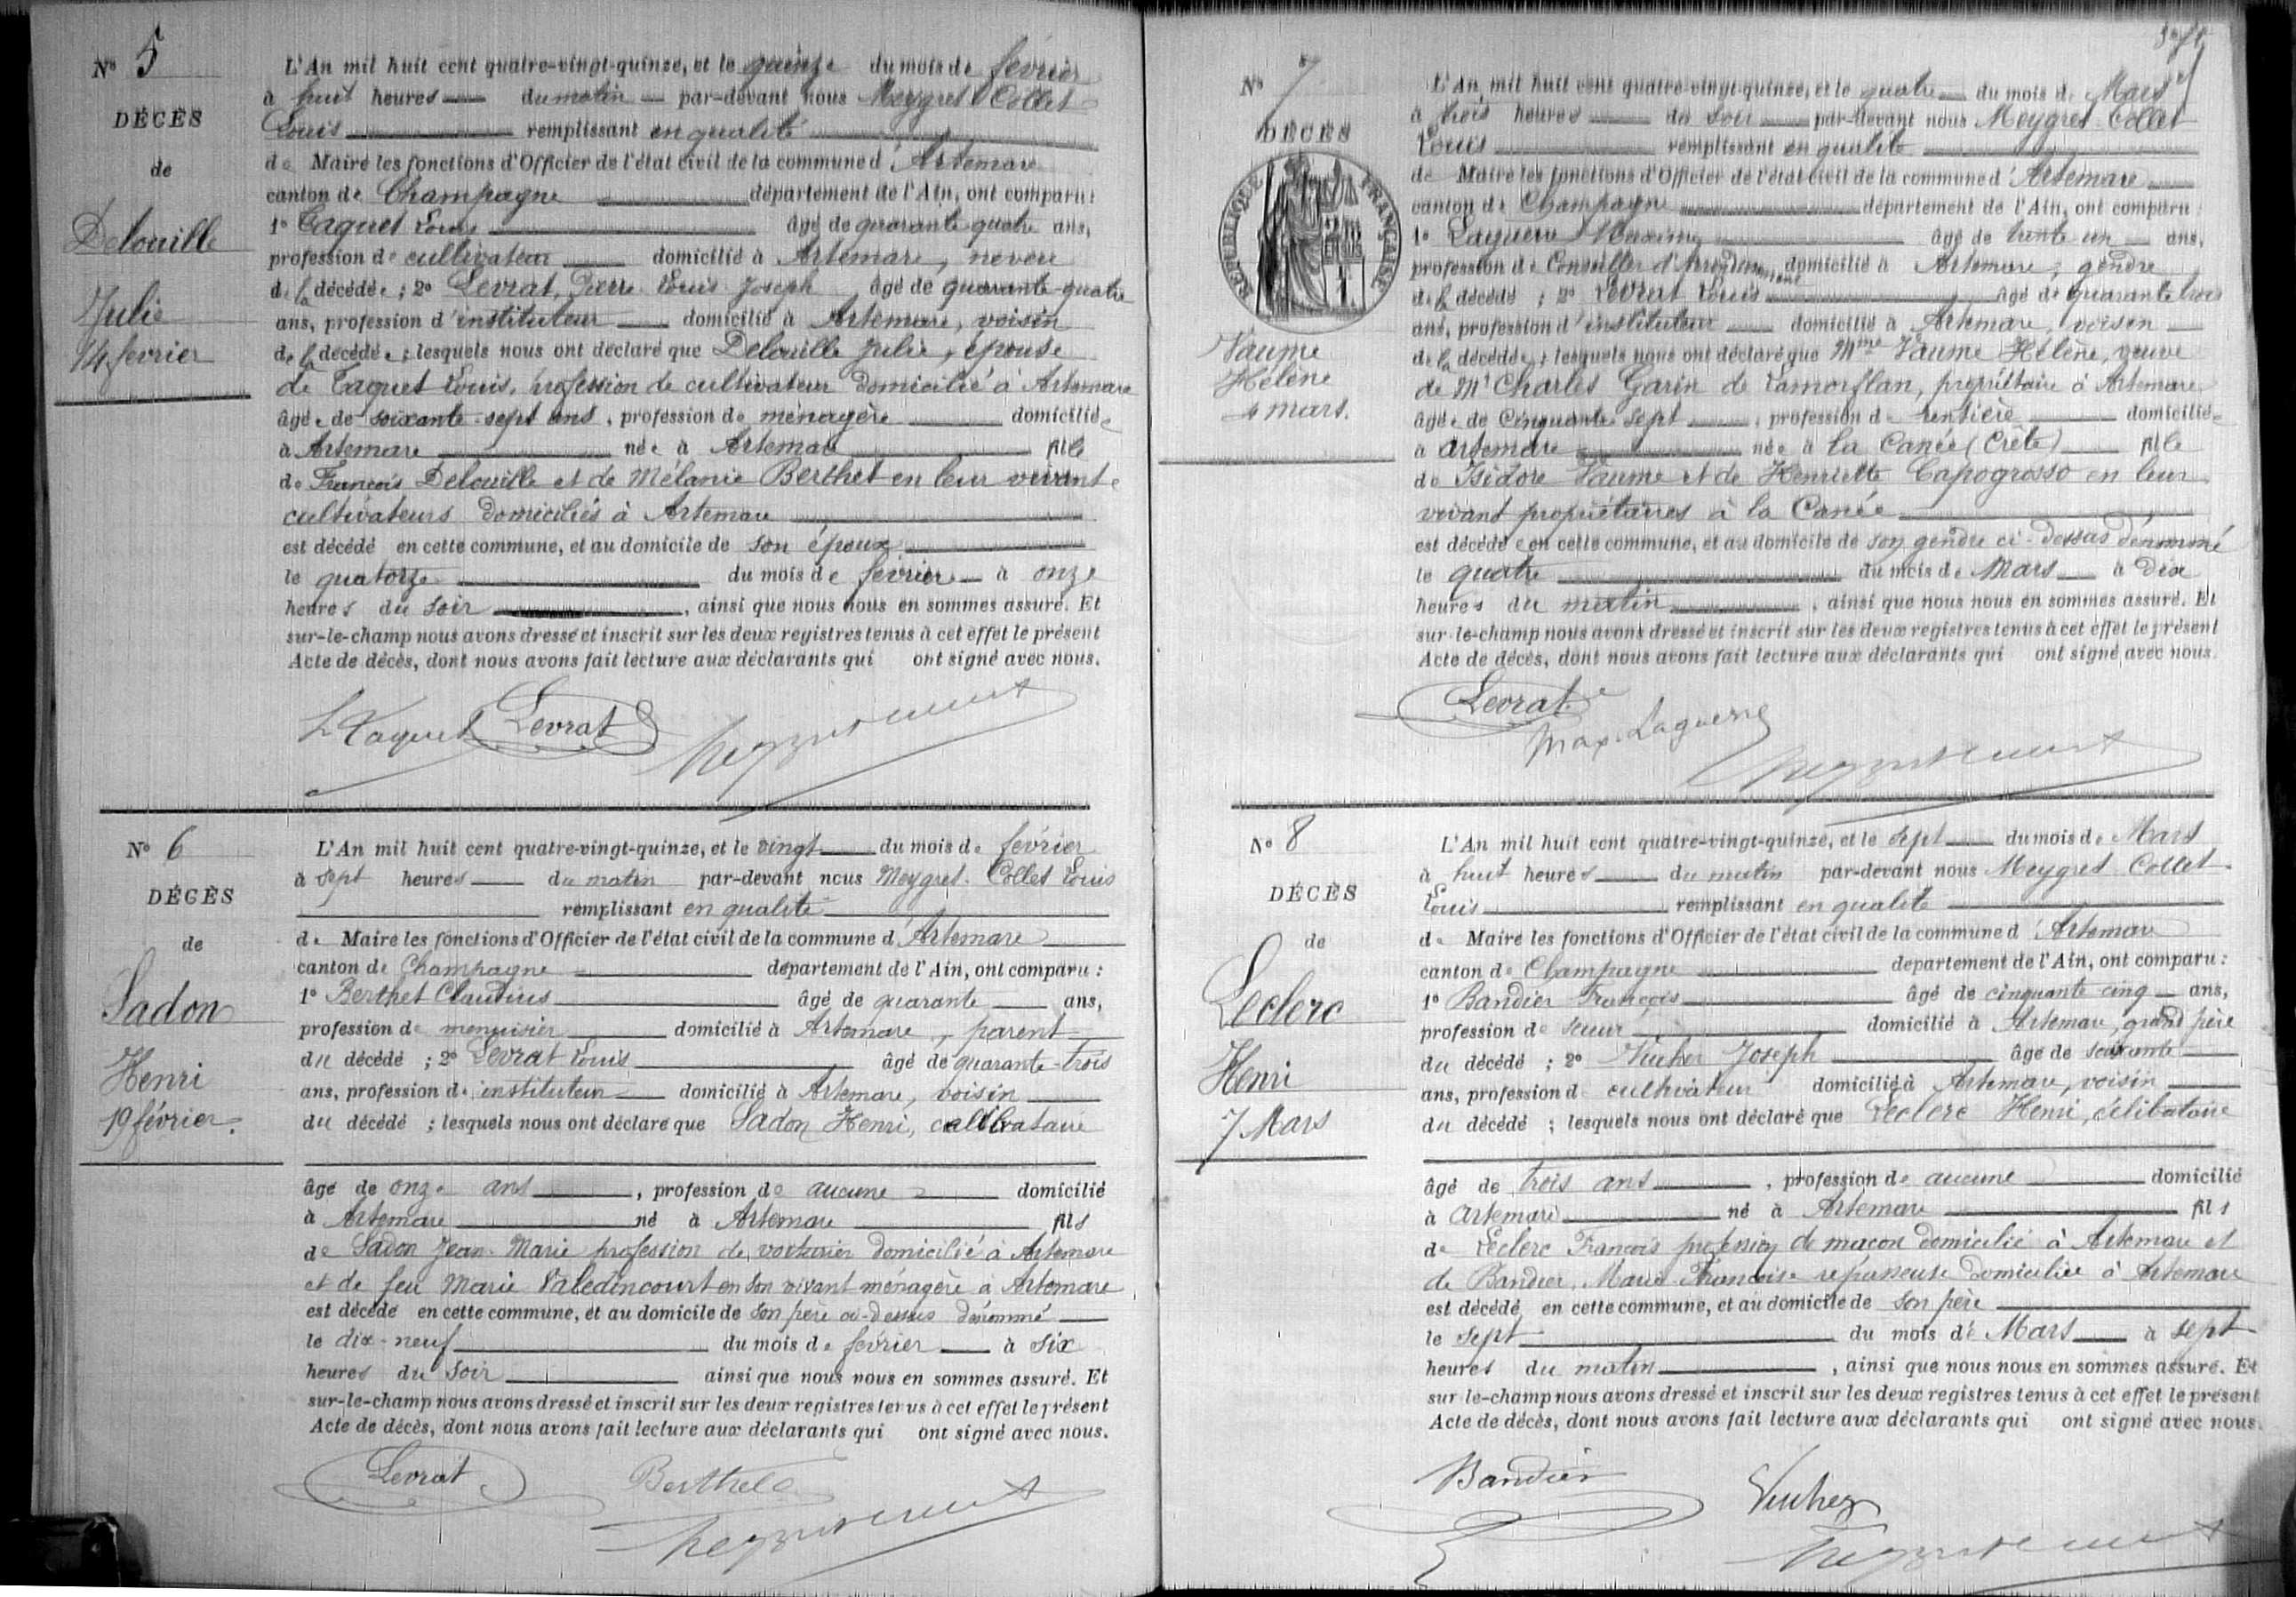 N° 5
DÉCÈS
de
Delouille
Julie
14 fevrier
L'An mil huit cent quatre-vingt-quinze, et le quinze du mois de février
à huit heures du matin par-devant nous Meygret Collet
Louis remplissant en qualité
de Maire les fonctions d'Officier de l'état civil de la commune d'Artemare
canton de Champagne département de l'Ain, ont comparu:
1° Taquet Louis âgé de quarante quatre ans,
profession de cultivateur domicilié à Artemare, neveu
de la décédée; 2° Levrat, Pierre Louis Joseph âgé de quarante-quatre
ans, profession d'instituteur domicilié à Artemare, voisin
de la décédée; lesquels nous ont déclaré que Delouille Julie, épouse
de Taquet Louis, profession de cultivateur domicilié à Artemare
âgée de soixante-sept ans, profession de ménagère domiciliée
à Artemare née à Artemare fille
de François Delouille et de Mélanie Berthet en leur vivant
cultivateurs domiciliés à Artemare
est décédé en cette commune, et au domicile de son époux
le quatorze du mois de fevrier à onze
heures du soir, ainsi que nous nous en sommes assuré. Et
sur-le-champ nous avons dressé et inscrit sur les deux registres tenus à cet effet le présent
Acte de décès, dont nous avons fait lecture aux déclarants qui ont signé avec nous.
L Taquet Levrat
N° 6
DÉCÈS
de
Sadon
Henri
19 février.
L'An mil huit cent quatre-vingt-quinze, et le vingt du mois de février
à sept heures du matin par-devant nous Meygret-Collet Louis
remplissant en qualité
de Maire les fonctions d'Officier de l'état civil de la commune d'Artemare
canton de Champagne département de l'Ain, ont comparu:
1° Berthet Claudius âgé de quarante ans,
profession de menuisier domicilié à Artemare, parent
du décédé; 2° Levrat Louis âgé de quarante-trois
ans, profession d'instituteur domicilié à Artemare, voisin
du décédé; lesquels nous ont déclaré que Sadon Henri, célibataire
âgé de onze ans, profession de aucune domicilié
à Artemare né à Artemare fils
de Sadon Jean-Marie profession de voiturier domicilié à Artemare
et de feu Marie Valedincourt en son vivant ménagère à Artemare
est décédé en cette commune, et au domicile de son père ci-dessus dénommé
le dix-neuf du mois de février à six
heures du soir ainsi que nous nous en sommes assuré. Et
sur-le-champ nous avons dressé et inscrit sur les deux registres tenus à cet effet le présent
Acte de décès, dont nous avons fait lecture aux déclarants qui ont signé avec nous.
Levrat Berthet
N° 7
DÉCÈS
RÉPUBLIQUE FRANÇAISE
Vaume
Hélène
4 mars.
L'An mil huit cent quatre-vingt-quinze, et le quatre du mois de Mars
à trois heures du soir par-devant nous Meygret-Collet
Louis remplissant en qualité
de Maire les fonctions d'Officier de l'état civil de la commune d'Artemare
canton de Champagne département de l'Ain, ont comparu:
1° Laguerre Maxime âgé de trente-un ans,
profession de Conseiller d'Arrondissement domicilié à Artemare, gendre
de la décédé; 2° Levrat Louis âgé de quarante trois
ans, profession d'instituteur domicilié à Artemare, voisin
de la décédée; lesquels nous ont déclaré que Mme Vaume Hélène, veuve
de Mr Charles Garin de Lamorflan, propriétaire à Artemare
âgée de Cinquante sept, profession de rentière domiciliée
à Artemare née à la Canée (Crête) fille
de Isidore Vaume et de Henriette Capogrosso en leur
vivant propriétaires à la Canée
est décédée en cette commune, et au domicile de son gendre ci-dessus dénommé
le quatre du mois de Mars à dix
heures du matin, ainsi que nous nous en sommes assuré. Et
sur-le-champ nous avons dressé et inscrit sur les deux registres tenus à cet effet le présent
Acte de décès, dont nous avons fait lecture aux déclarants qui ont signé avec nous.
Levrat
Max. Laguerre
N° 8
DÉCÈS
de
Leclerc
Henri
7 Mars
L'An mil huit cent quatre-vingt-quinze, et le sept du mois de Mars
à huit heures du matin par-devant nous Meygret-Collet
Louis remplissant en qualité
de Maire les fonctions d'Officier de l'état civil de la commune d'Artemare
canton de Champagne département de l'Ain, ont comparu:
1° Bandier François âgé de cinquante cinq ans,
profession de domicilié à Artemare, grand père
du décédé; 2° Vucher Joseph âgé de soixante
ans, profession de cultivateur domicilié à Artemare, voisin
du décédé; lesquels nous ont déclaré que Leclerc Henri, célibataire
âgé de trois ans, profession de aucune domicilié
à Artemare né à Artemare fils
de Leclerc François profession de maçon domicilié à Artemare et
de Bandier Marie-Françoise repasseuse domiciliée à Artemare
est décédé en cette commune, et au domicile de son père
le sept du mois de Mars à sept
heures du matin, ainsi que nous nous en sommes assuré. Et
sur-le-champ nous avons dressé et inscrit sur les deux registres tenus à cet effet le présent
Acte de décès, dont nous avons fait lecture aux déclarants qui ont signé avec nous.
Bandier Vucher